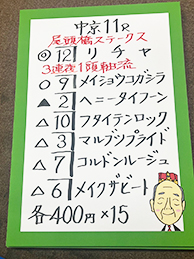 中京11R
尾頭橋ステークス
◎12リチャ
3連複1頭軸流
○9メイショウコガシラ
▲2ヘニータイフーン
△10フタイテンロック
△3マルブツプライド
△7コルドンルージュ
△6メイクザビート
各400円×15